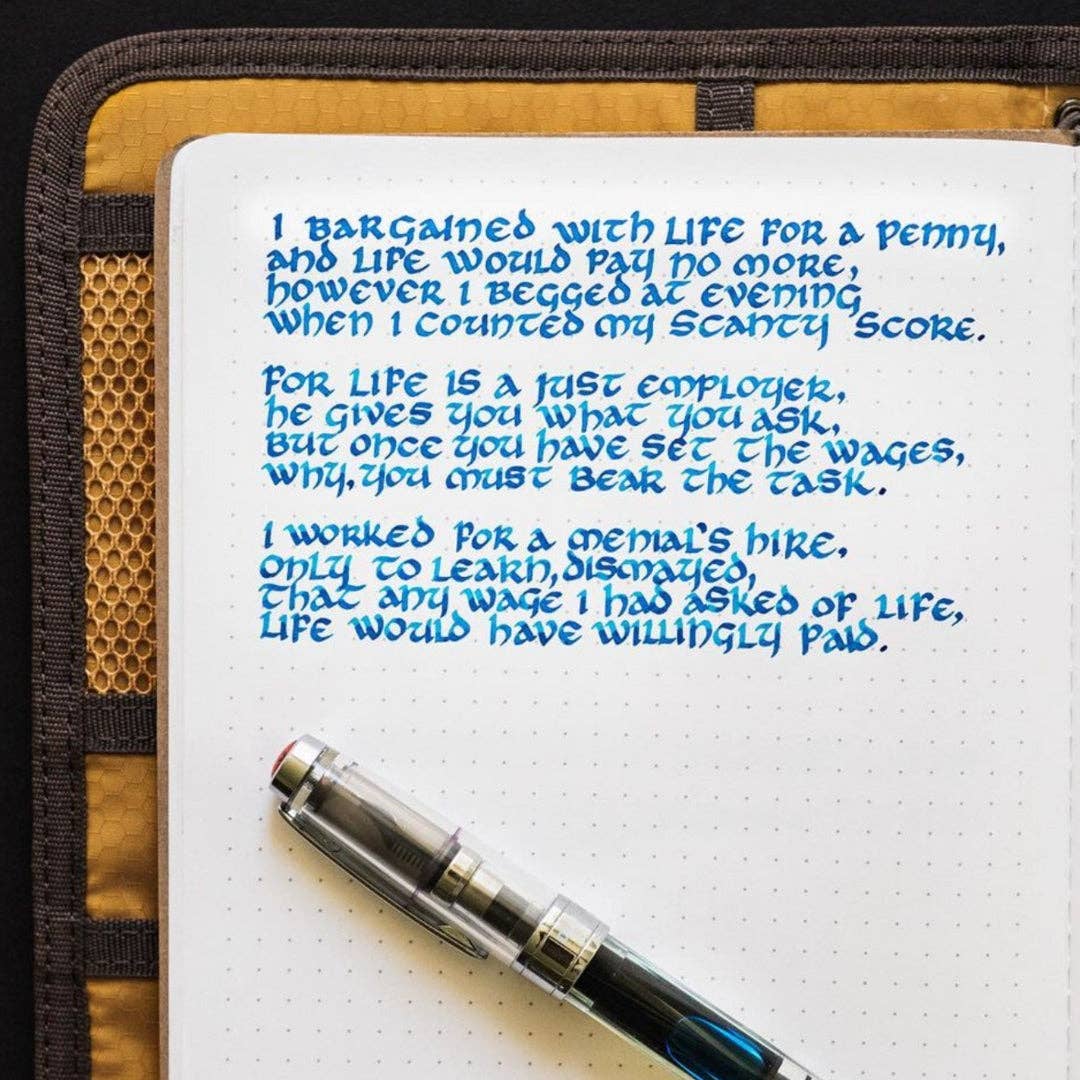 I bargained with life for a penny,
and life would pay no more,
however I begged at evening
when I counted my scanty score.
For life is a just employer,
he gives you what you ask,
but once you have set the wages,
why, you must bear the task.
I worked for a menial's hire,
only to learn, dismayed,
that any wage I had asked of life,
life would have willingly paid.